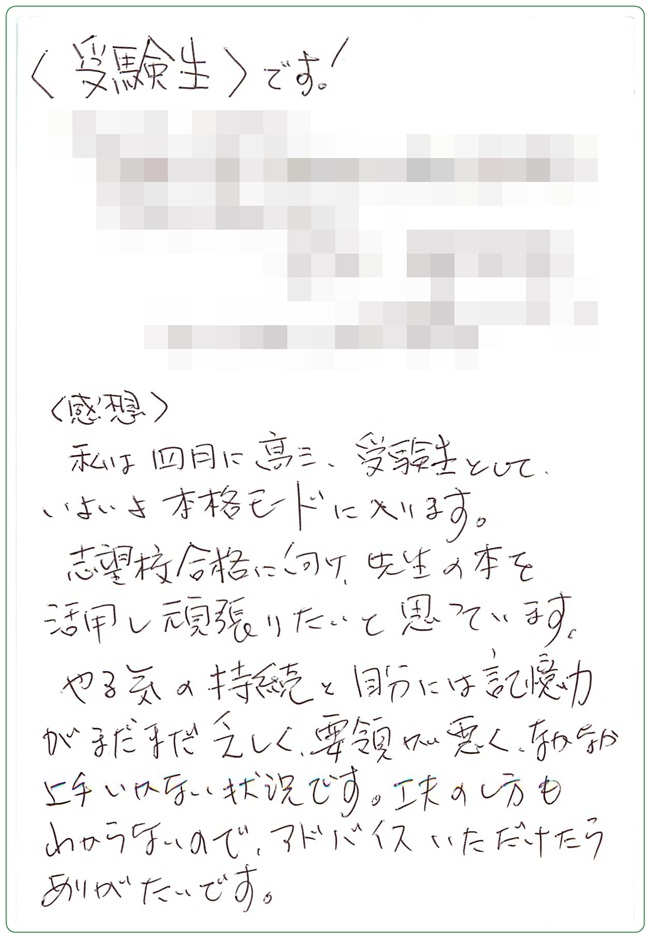 〈受験生〉です!
〈感想〉
私は四月に高三、受験生として、
いよいよ本格モードに入ります。
志望校合格に向け、先生の本を
活用し頑張りたいと思っています。
やる気の持続と自分には記憶力
がまだまだ乏しく、要領が悪く、なかなか
上手いかない状況です。工夫のし方も
わからないので、アドバイスいただけたら
ありがたいです。